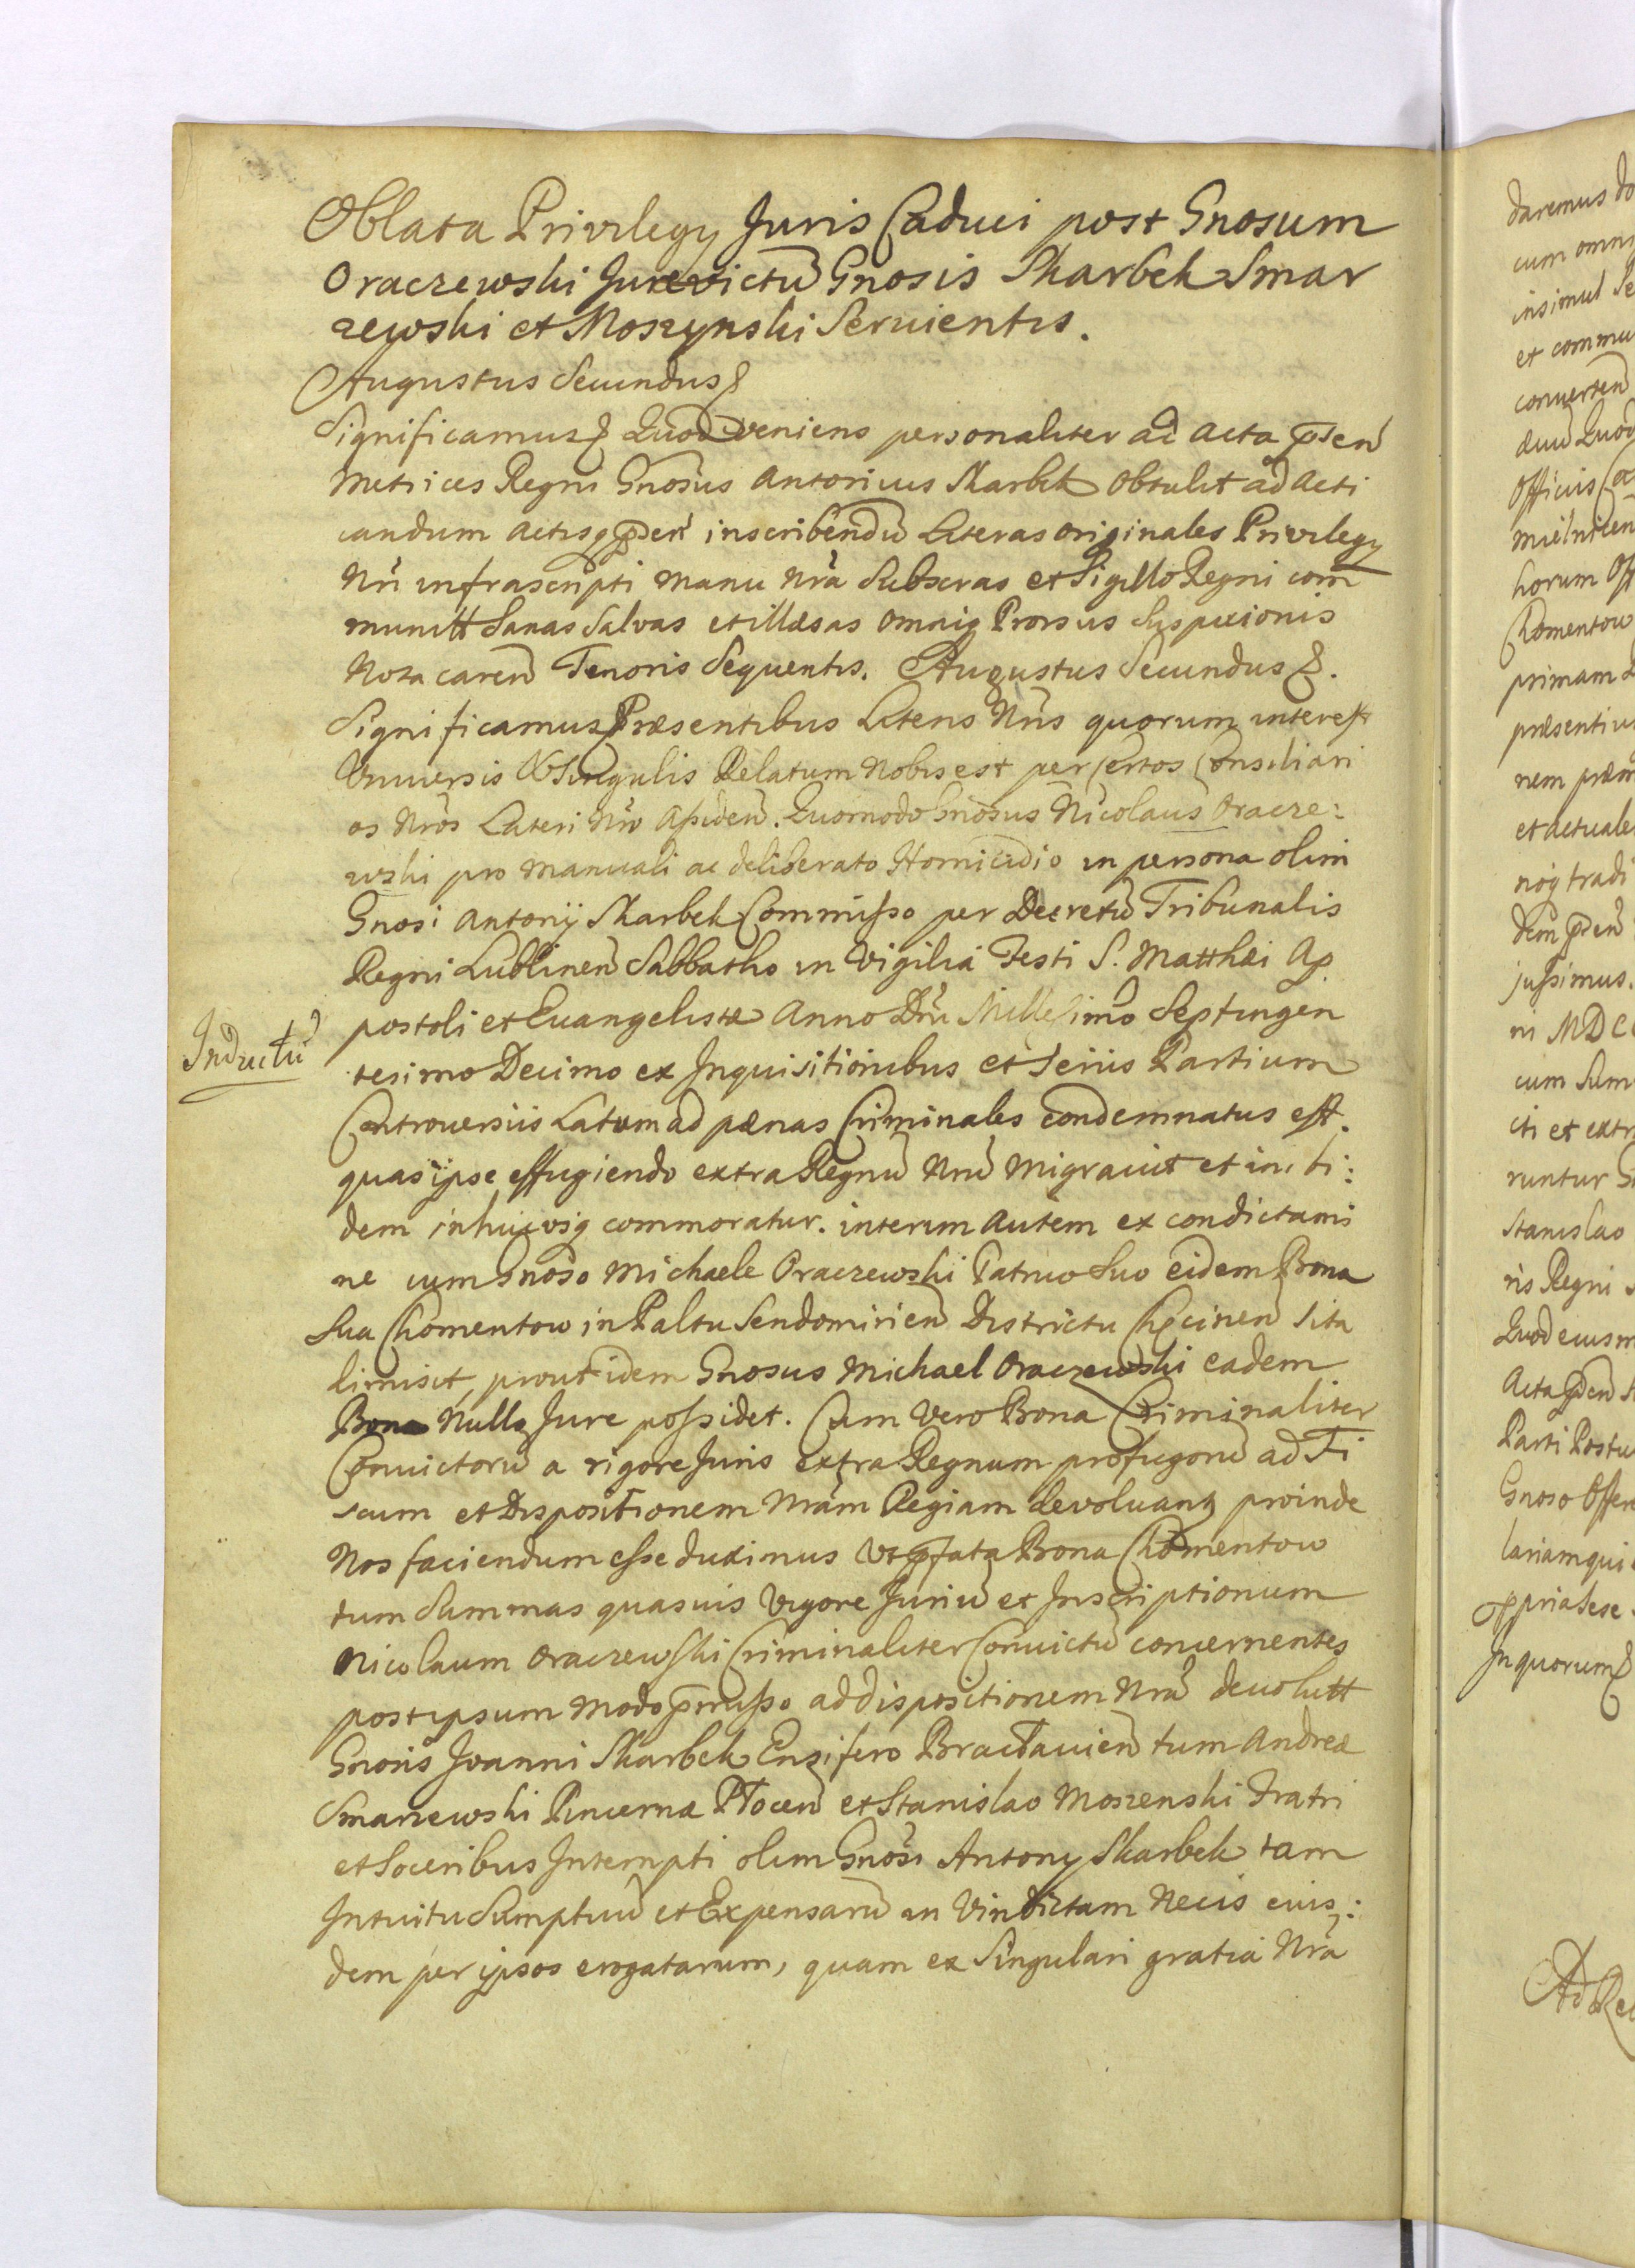 Oblata Privilegy Juris Caduci post Gnosum
Oraczewski Jurevictũ Gnosis Skarbek Smar
zewski et Moszynski Seruientis.
Augustus Secundus &
Significamus & Quod veniens personaliter ad Acta p̃sen
Metrices Regni Gnosus Antonius Skarbek Obtulit ad Acti
candum Actisq p̃sen inscribendũ Literas originales Privilegy
Nri infrascripti manu Nra Subscras et Sigillo Regni com
munitt Sanas Salvas et illæsas omniq Prorsus Suspicionis
Nota caren Tenoris Sequentis. Augustus Secundus &.
Significamus Præsentibus Literis Nris quorum interest
Vniuersis & Singulis Relatum Nobis est per certos Consiliari
os Nros Lateri Nro Assiden. Quomodo Gnosus Nicolaus Oracze:
wski pro manuali ac deliberato Homicidio in persona olim
Gnosi Antonij Skarbek Commisso per Decretũ Tribunalis
Regni Lublinen Sabbatho in Vigilia Festi S. Matthæi Ap
postoli et Euangelistæ Anno Dni Millesimo Septingen
Inductũ
tesimo Decimo ex Inquisitionibus et Seriis Partium
Controuersiis Latum ad pænas Criminales condemnatus est.
quas ipse effugiendo extra Regnũ Nrũ Migrauit et in. bi:
dem inhucvsq commoratur. interim autem ex condictami
ne cum Gnoso Michaele Oraczewski Patruo Suo eidem Bona
Sua Chomentow in Paltu Sendomirien Districtu Chęcinen Sita
dimisit, prout idem Gnosus Michael Oraczewski eadem
Bona Nullo Jure possidet. Cum Vero Bona Criminaliter
Conuictorũ a rigore Juris extra Regnum profugorũ ad Fi
scum et Dispositionem Nram Regiam devoluant proinde
Nos faciendum esse duximus Vt p̃fata Bona Chomentow
tum Summas quasuis Vigore Juriũ et Inscriptionum
Nicolaum Oraczewski Criminaliter Conuictũ concernentes
post ipsum modo p̃misso ad dispositionem Nra deuolutt
Gnosis Joanni Skarbek Ensifero Bractauien tum Andreæ
Smarzewski Pincernæ Płocen et Stanislao Moszenski Fratri
et Soceribus Interempti olim Gnosi Antony Skarbek tam
Intuitu Sumptuũ et Expensarũ in Vindictam Necis eius:
dem per ipsos erogatarum, quam ex Singulari gratia Nra